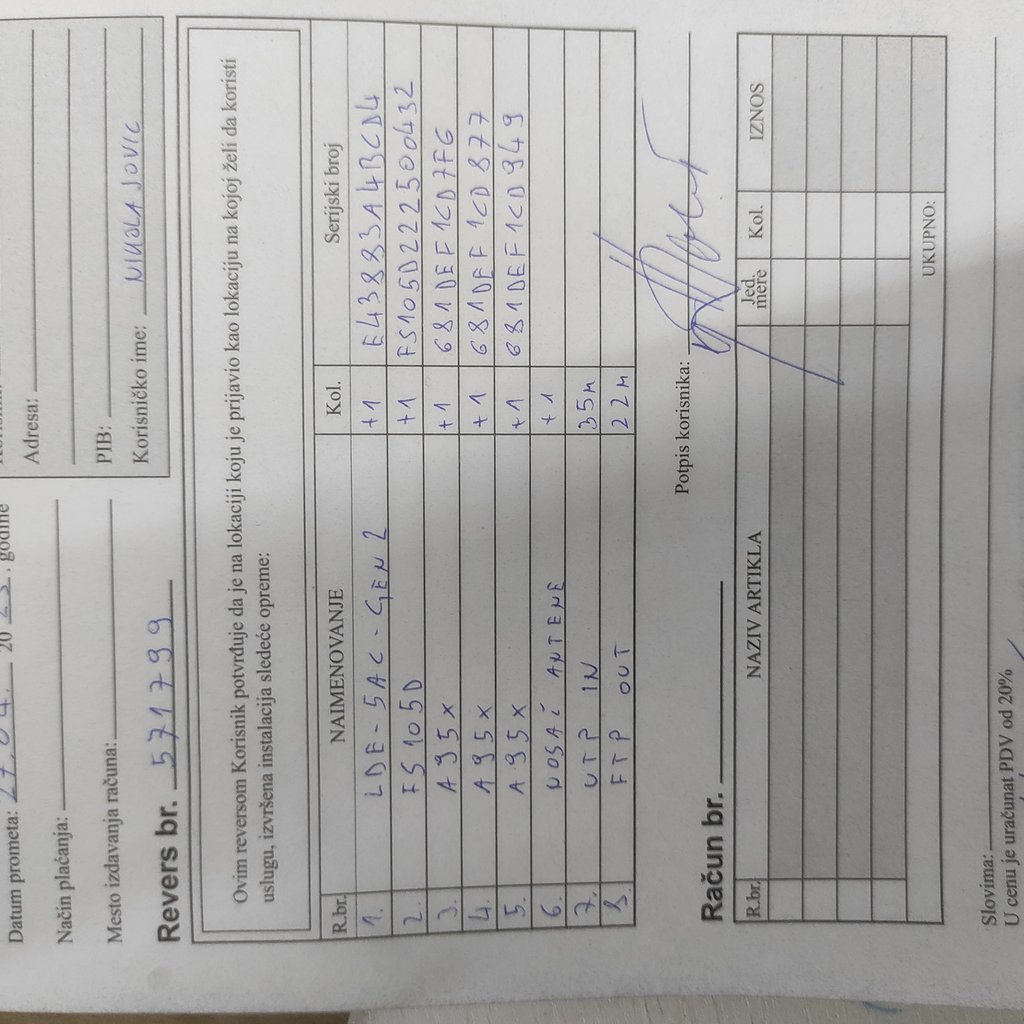 Datum prometa: 27.04. 20 23. godine
Način plaćanja:
Mesto izdavanja računa:
Adresa:
PIB:
Korisničko ime: NIKOLA JOVIC
Revers br. 571799
Ovim reversom Korisnik potvrđuje da je na lokaciji koju je prijavio kao lokaciju na kojoj želi da koristi
uslugu, izvršena instalacija sledeće opreme:
R.br. NAIMENOVANJE Kol. Serijski broj
1. LDE-5AC-GEN2 +1 E43883A4BCD4
2. FS105D +1 FS105D222500432
3. A95X +1 681DEF1CD7FG
4. A95X +1 681DEF1CD877
5. A95X +1 681DEF1CD949
6. NOSAČ ANTENE +1
7. UTP IN 35m
8. FTP OUT 22m
Potpis korisnika:
Račun br.
R.br. NAZIV ARTIKLA Jed. mere Kol. IZNOS
UKUPNO:
Slovima:
U cenu je uračunat PDV od 20%